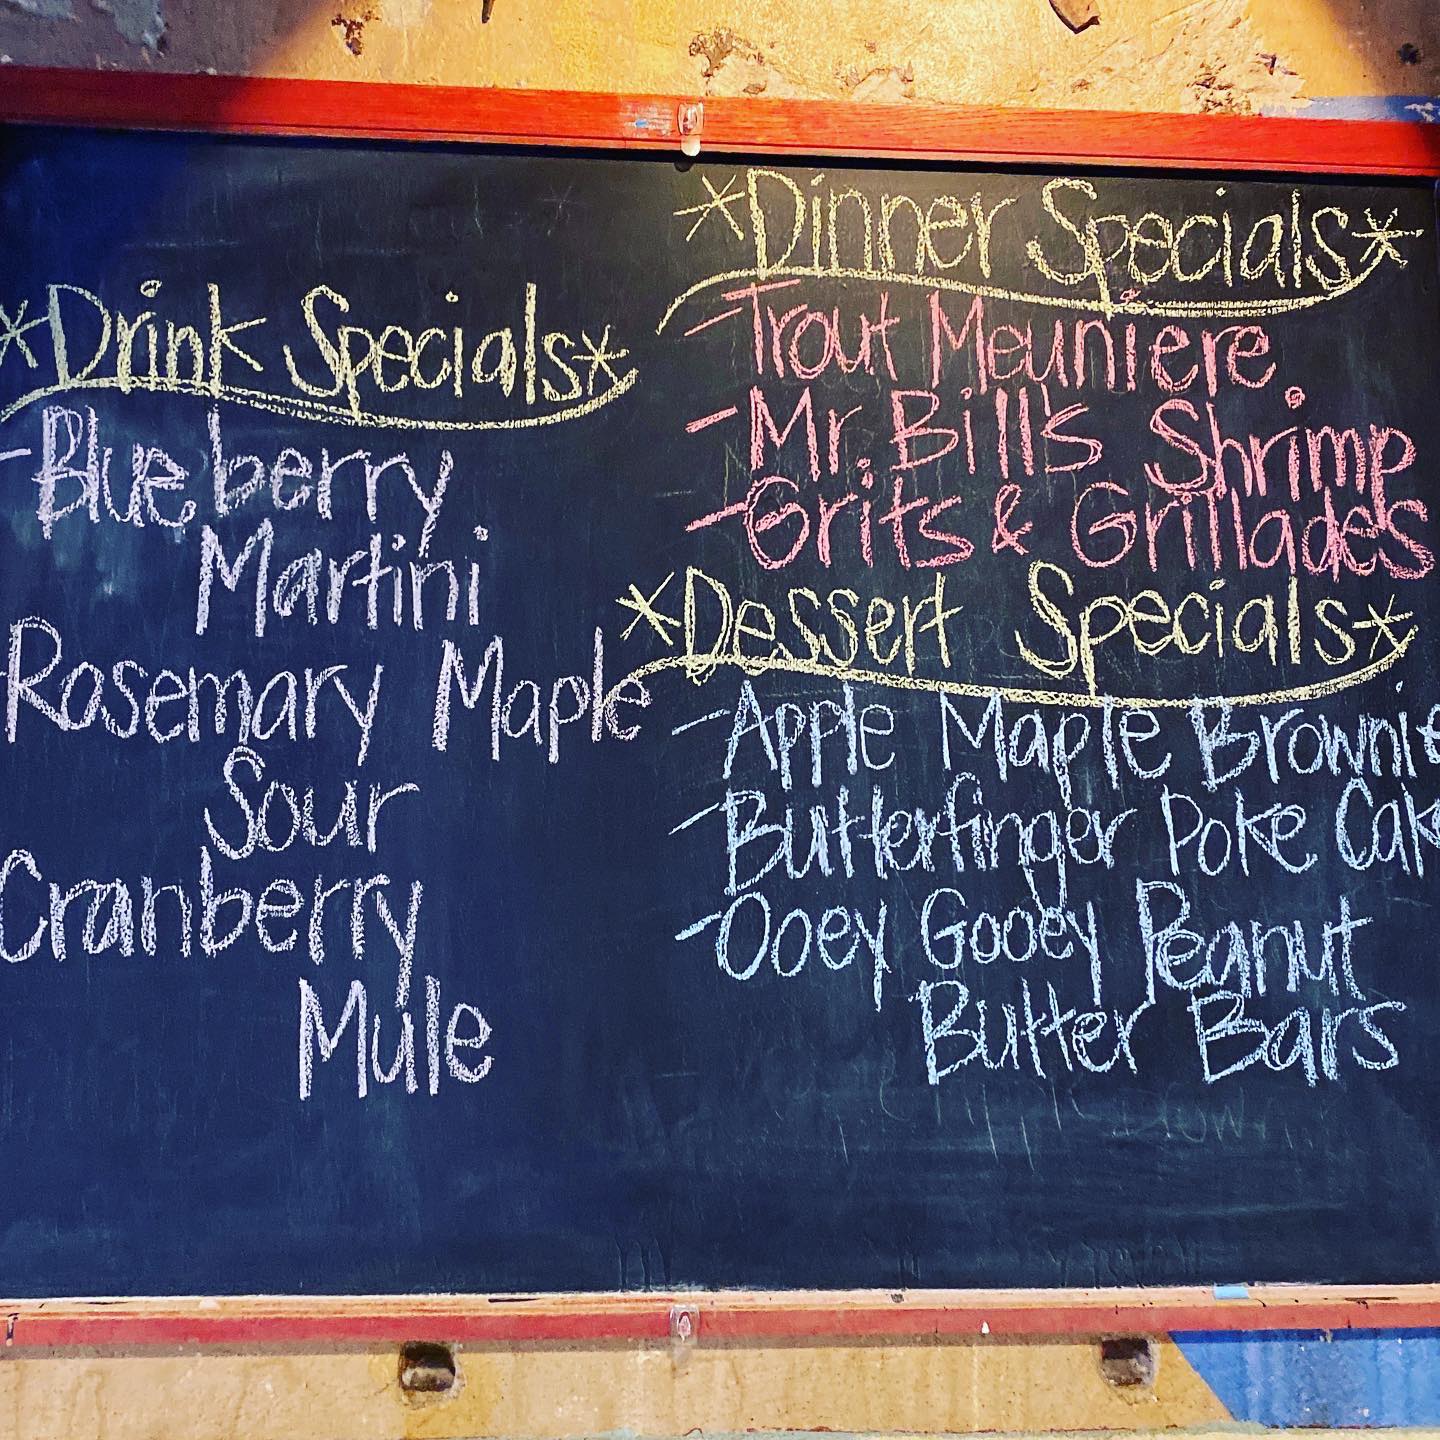 *Drink Specials*
-Blueberry
Martini
Rosemary Maple
Sour
Cranberry
Mule
*Dinner Specials*
-Trout Meuniere
-Mr. Bill's Shrimp
-Grits & Grillades
*Dessert Specials*
-Apple Maple Brownie
-Butterfinger Poke Cak
-Ooey Gooey Peanut
Butter Bars